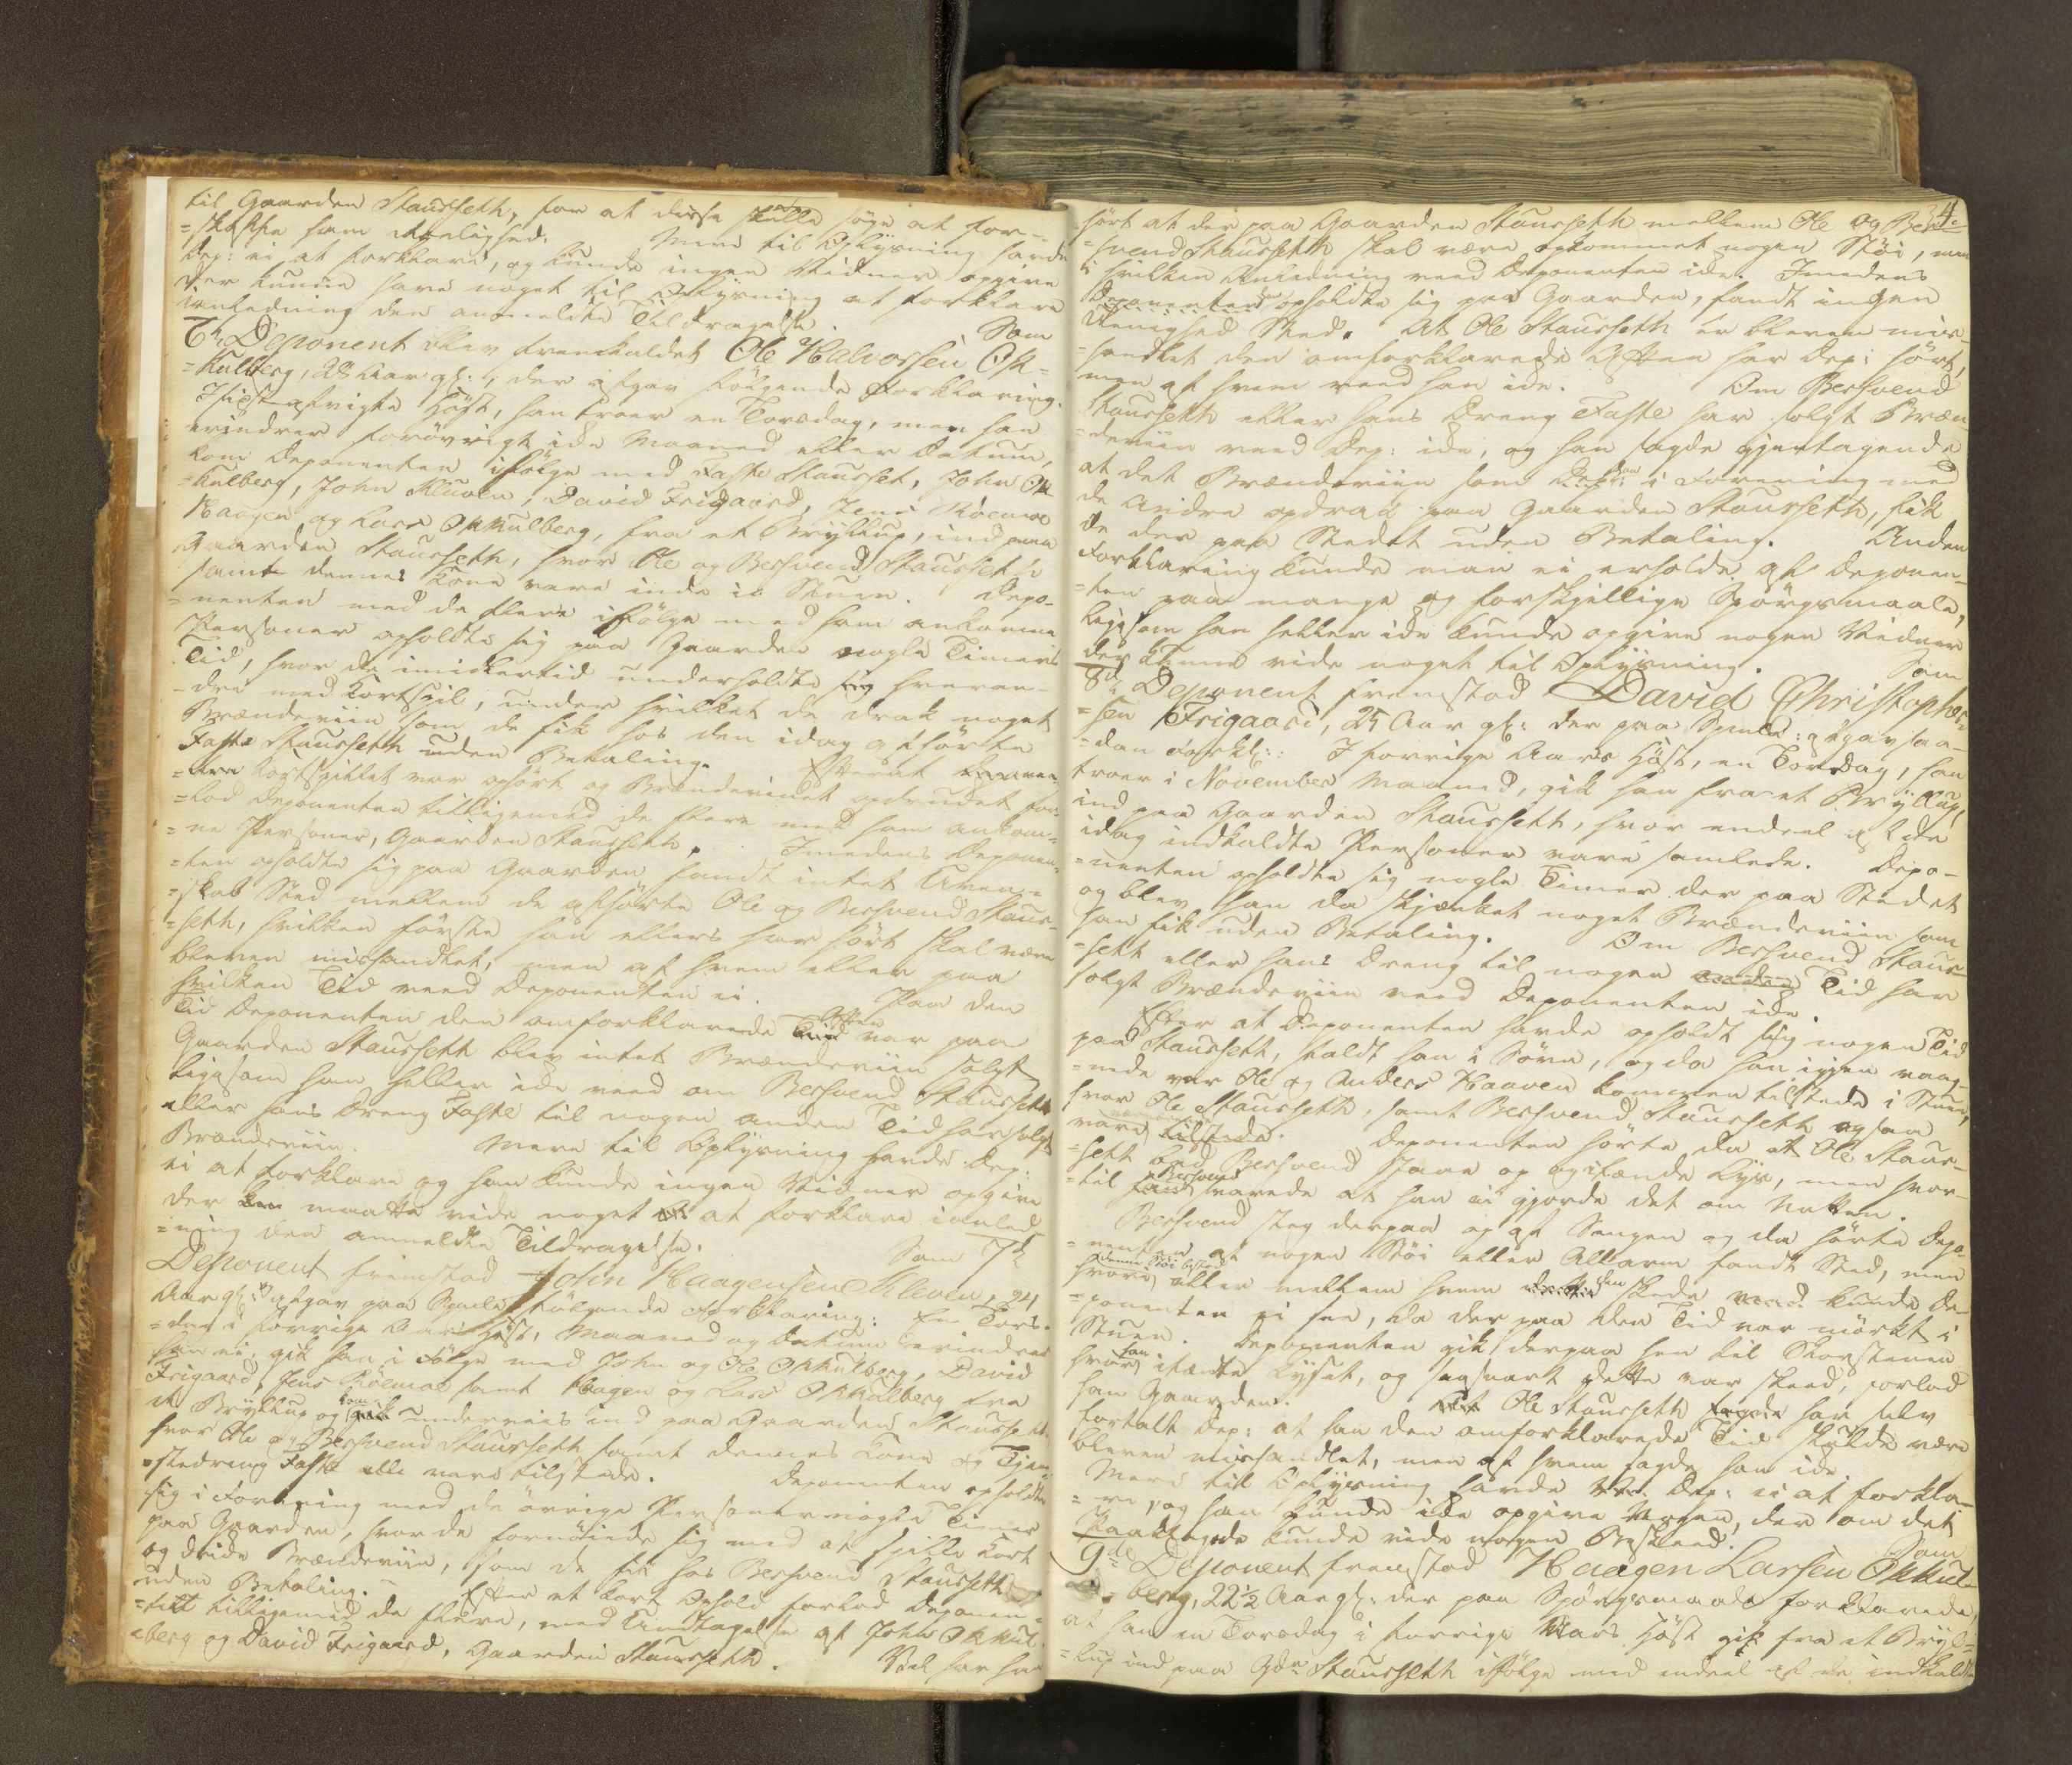 til Gaarden Staursetth, for at disse skulle søge at for-
=skaffe ham Leilighed. Mere til Oplysning havde
Dep: ei at forklare, og kunde ingen Vidner opgive
der kunne have noget til Oplysning at forklare
ianledning den anmeldte Tildragelse. Som
6te Deponent blev fremkaldet Ole Halvorsen Ok-
=kulberg, 28 Aar gl:, der afgav følgende Forklaring.
Ifiorst afvigte Høst, han troer en Torsdag, men han
erindrer forøvrigt ikke Maaned eller Datum,
kom Deponenten ifølge med Faste Staurset, John Ok
=kulberg, John Kluven, David Frigaard, Jens Röemoe
Haagen og Lars Okkulberg, fra et Bryllup, ind paa
Gaarden Staursetth, hvor Ole og Bersvend Staurseth
samt dennes Kone vare inde i Stuen. Depo-
=nenten med de flere ifølge med ham ankomne
Personer opholdte sig paa Gaarden nogle Timers
Tid, hvor de imidlertid underholdte sig hveran-
=dre med Kortspil, under hvilket de drak noget
Brændeviin som de fik hos den idag afhørte
Faste Staursetth uden Betaling. Efterat
Kortspillet var ophørt og Brændevinet opdrukket for-
=lod Deponenten tilligemed de flere med ham ankom-
=ne Personer, Gaarden Staursetth. Imedens Deponen-
=ten opholdte sig paa Gaarden fandt intet Uven-
=skab Sted mellem de afhørte Ole og Bersvend Staur-
=seth, hvilken første han ellers har hørt skal være
bleven mishandlet, men af hvem eller paa
hvilken Tid veed Deponenten ei. Paa den
Tid Deponenten den omforklarede Aften var paa
Gaarden Staursetth blev intet Brændeviin solgt
ligesom han heller ikke veed om Bersvend Staursetth
eller hans Dreng Faste til nogen anden Tid har solgt
Brændeviin. Mere til Oplysning havde Dep:
ei at forklare og han kunde ingen Vidner opgive
der maatte vide noget at forklare ianled
=ning den anmeldte Tildragelse. Som 7de
Deponent fremstod John Haagensen Kleven, 24
Aar gl: og afgav paa Spml: følgende Forklaring: En Tors-
=dag i forrige Aars Høst, Maaned og Datum erindrer
han ei, gik han i Følge med John og Ole Okkulberg, David
Frigaard, Jens Röemoe samt Haagen og Lars Okkulberg fra
et Bryllup og kom underveis ind paa Gaarden Staursetth
hvor Ole og Bersvend Staursetth samt dennes Kone og Tjene
=stedreng Faste alle vare tilstede. Deponenten opholdte
sig i Forening med de øvrige Personer nogle Timer
paa Gaarden, hvor de fornøiede sig med at spille Kort
og drikke Brændeviin, som de fik hos Bersvend Staursetth
uden Betaling. Efter et kort Ophold forlod Deponen-
=ten tilligemed de flere, med Undtagelse af John Okkul-
=berg og David Frigaard, Gaarden Staursetth. Vel har han
34.
hørt at der paa Gaarden Staursetth mellem Ole og Ber-
=svend Staursetth skal være opkommet nogen Støi, men
i hvilken Anledning veed Deponenten ikke. Imedens
Deponenten opholdte sig paa Gaarden, fandt ingen
Uenighed Sted. At Ole Staursetth er bleven mis-
=handlet den omforklarede Aften har Dep: hørt,
men af hvem veed han ikke. Om Bersvend
Staursetth eller hans Dreng Faste har solgt Bræn
=deviin veed Dep: ikke, og han sagde gjentagende
at det Brændeviin som han i Forening med
de Andre opdrak paa Gaarden Staursetth, fik
de der paa Stedet uden Betaling. Anden
Forklaring kunde man ei erholde af Deponen-
=ten paa mange og forskjellige Spørgsmaale,
ligesom han heller ikke kunde opgive nogen Vidner
der kunne vide noget til Oplysning. Som
8de Deponent fremstod David Christopher-
=sen Frigaard, 25 Aar gl: der paa Spml: afgav saa-
=dan Forkl:: I forrige Aars Høst, en Torsdag, han
troer i November Maaned, gik han fra et Bryllup,
ind paa Gaarden Staursetth, hvor endeel af de
idag indkaldte Personer vare samlede. Depo-
=nenten opholdte sig nogle Timer der paa Stedet
og blev han da skjænket noget Brændeviin som
han fik uden Betaling. Om Bersvend Staur-
=sett eller hans Dreng til nogen Tid har
solgt Brændeviin veed Deponenten ikke.
Efter at Deponenten havde opholdt sig nogen Tid
paa Staursetth, faldt han i Søvn, og da han igjen vaag-
=nede var Ole og Anders Haaven kommen tilstede i Stuen,
hvor Ole Staursetth, samt Bersvend Staursetth ogsaa
vare tilstede. Deponenten hørte da at Ole Staur-
=sett bad Bersvend staae op og tænde Lys, men hvor-
=til Bersvend svarede at han ei gjorde det om Natten.
Bersvend steg derpaa op af Sengen og da hørte Depo-
=nenten at nogen Støi eller Allarm fandt Sted, men
hvori denne Støi bestod eller mellem hvem den skede kunde De-
=ponenten ei see, da der paa den Tid var mørkt i
Stuen. Deponenten gik derpaa hen til Skorstenen
hvor han tændte Lyset, og saasnart dette var skeed, forlod
han Gaarden. Ole Staursetth har selv
fortalt Dep: at han den omforklarede Tid skulde være
bleven mishandlet, men af hvem sagde han ikke.
Mere til Oplysning havde Dep: ei at forkla-
=re, og han kunde ikke opgive Nogen, der om det
Paaklagede kunde vide nogen Beskeed. Som
9de Deponent fremstod Haagen Larsen Okkul-
=berg, 22½ Aar gl: der paa Spørgsmaale forklarede,
at han en Torsdag i forrige Aars Høst gik fra et Bryl=
=lup ind paa Gdn Staursetth ifølge med endeel af de indkaldte